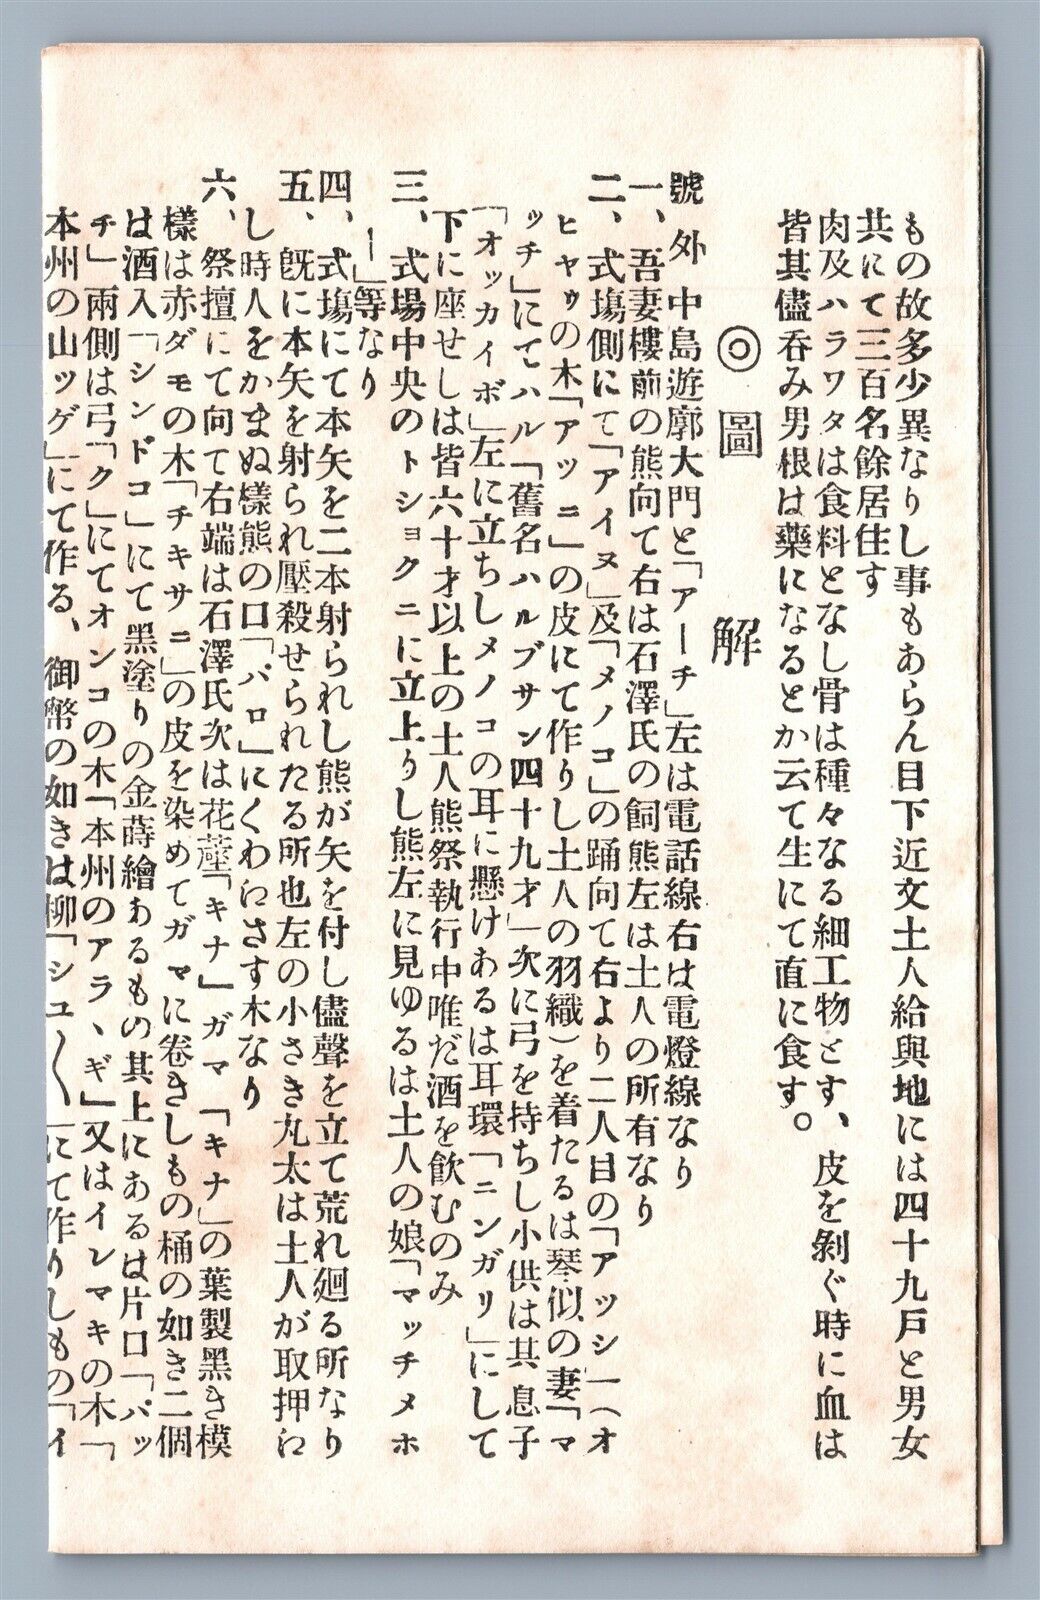 もの故多少異なりし事もあらん目下近文土人給與地には四十九戸と男女
共にて三百名餘居住す
肉及ハラワタは食料となし骨は種々なる細工物とす、皮を剝ぐ時に血は
皆其儘呑み男根は藥になるとか云て生にて直に食す。
◎圖解
號外 中島遊廓大門と「アーチ」左は電話線右は電燈線なり
一、吾妻樓前の熊向て右は石澤氏の飼熊左は土人の所有なり
二、式塲側にて「アイヌ」及「メノコ」の踊向て右より二人目の「アッシ」(オ
ヒヤウの木「アッニ」の皮にて作りし土人の羽織)を着たるは琴似の妻「マ
ッチ」にてハル「舊名ハルブサン四十九才」次に弓を持ちし小供は其息子
「オッカイボ」左に立ちしメノコの耳に懸けあるは耳環「ニンガリ」にして
下に座せしは皆六十才以上の土人熊祭執行中唯だ酒を飲むのみ
三、式場中央のトショクニに立上りし熊左に見ゆるは土人の娘「マッチメホ
ー」等なり
四、式塲にて本矢を二本射られし熊が矢を付し儘聲を立て荒れ廻る所なり
五、既に本矢を射られ壓殺せられたる所也左の小さき丸太は土人が取押に
し時人をかまぬ樣熊の口「パロ」にくわにさす木なり
六、祭擅にて向て右端は石澤氏次は花蓙「キナ」ガマ「キナ」の葉製黑き模
樣は赤ダモの木「チキサニ」の皮を染めてガマに卷きしもの桶の如き二個
は酒入「シンドコ」にて黑塗りの金蒔繪あるもの其上にあるは片口「パッ
チ」兩側は弓「ク」にてオンコの木「本州のアラヽギ」又はイレマキの木「
本州の山ツゲ」にて作る、御幣の如きは柳「シユ〱」にて作りしもの「イ